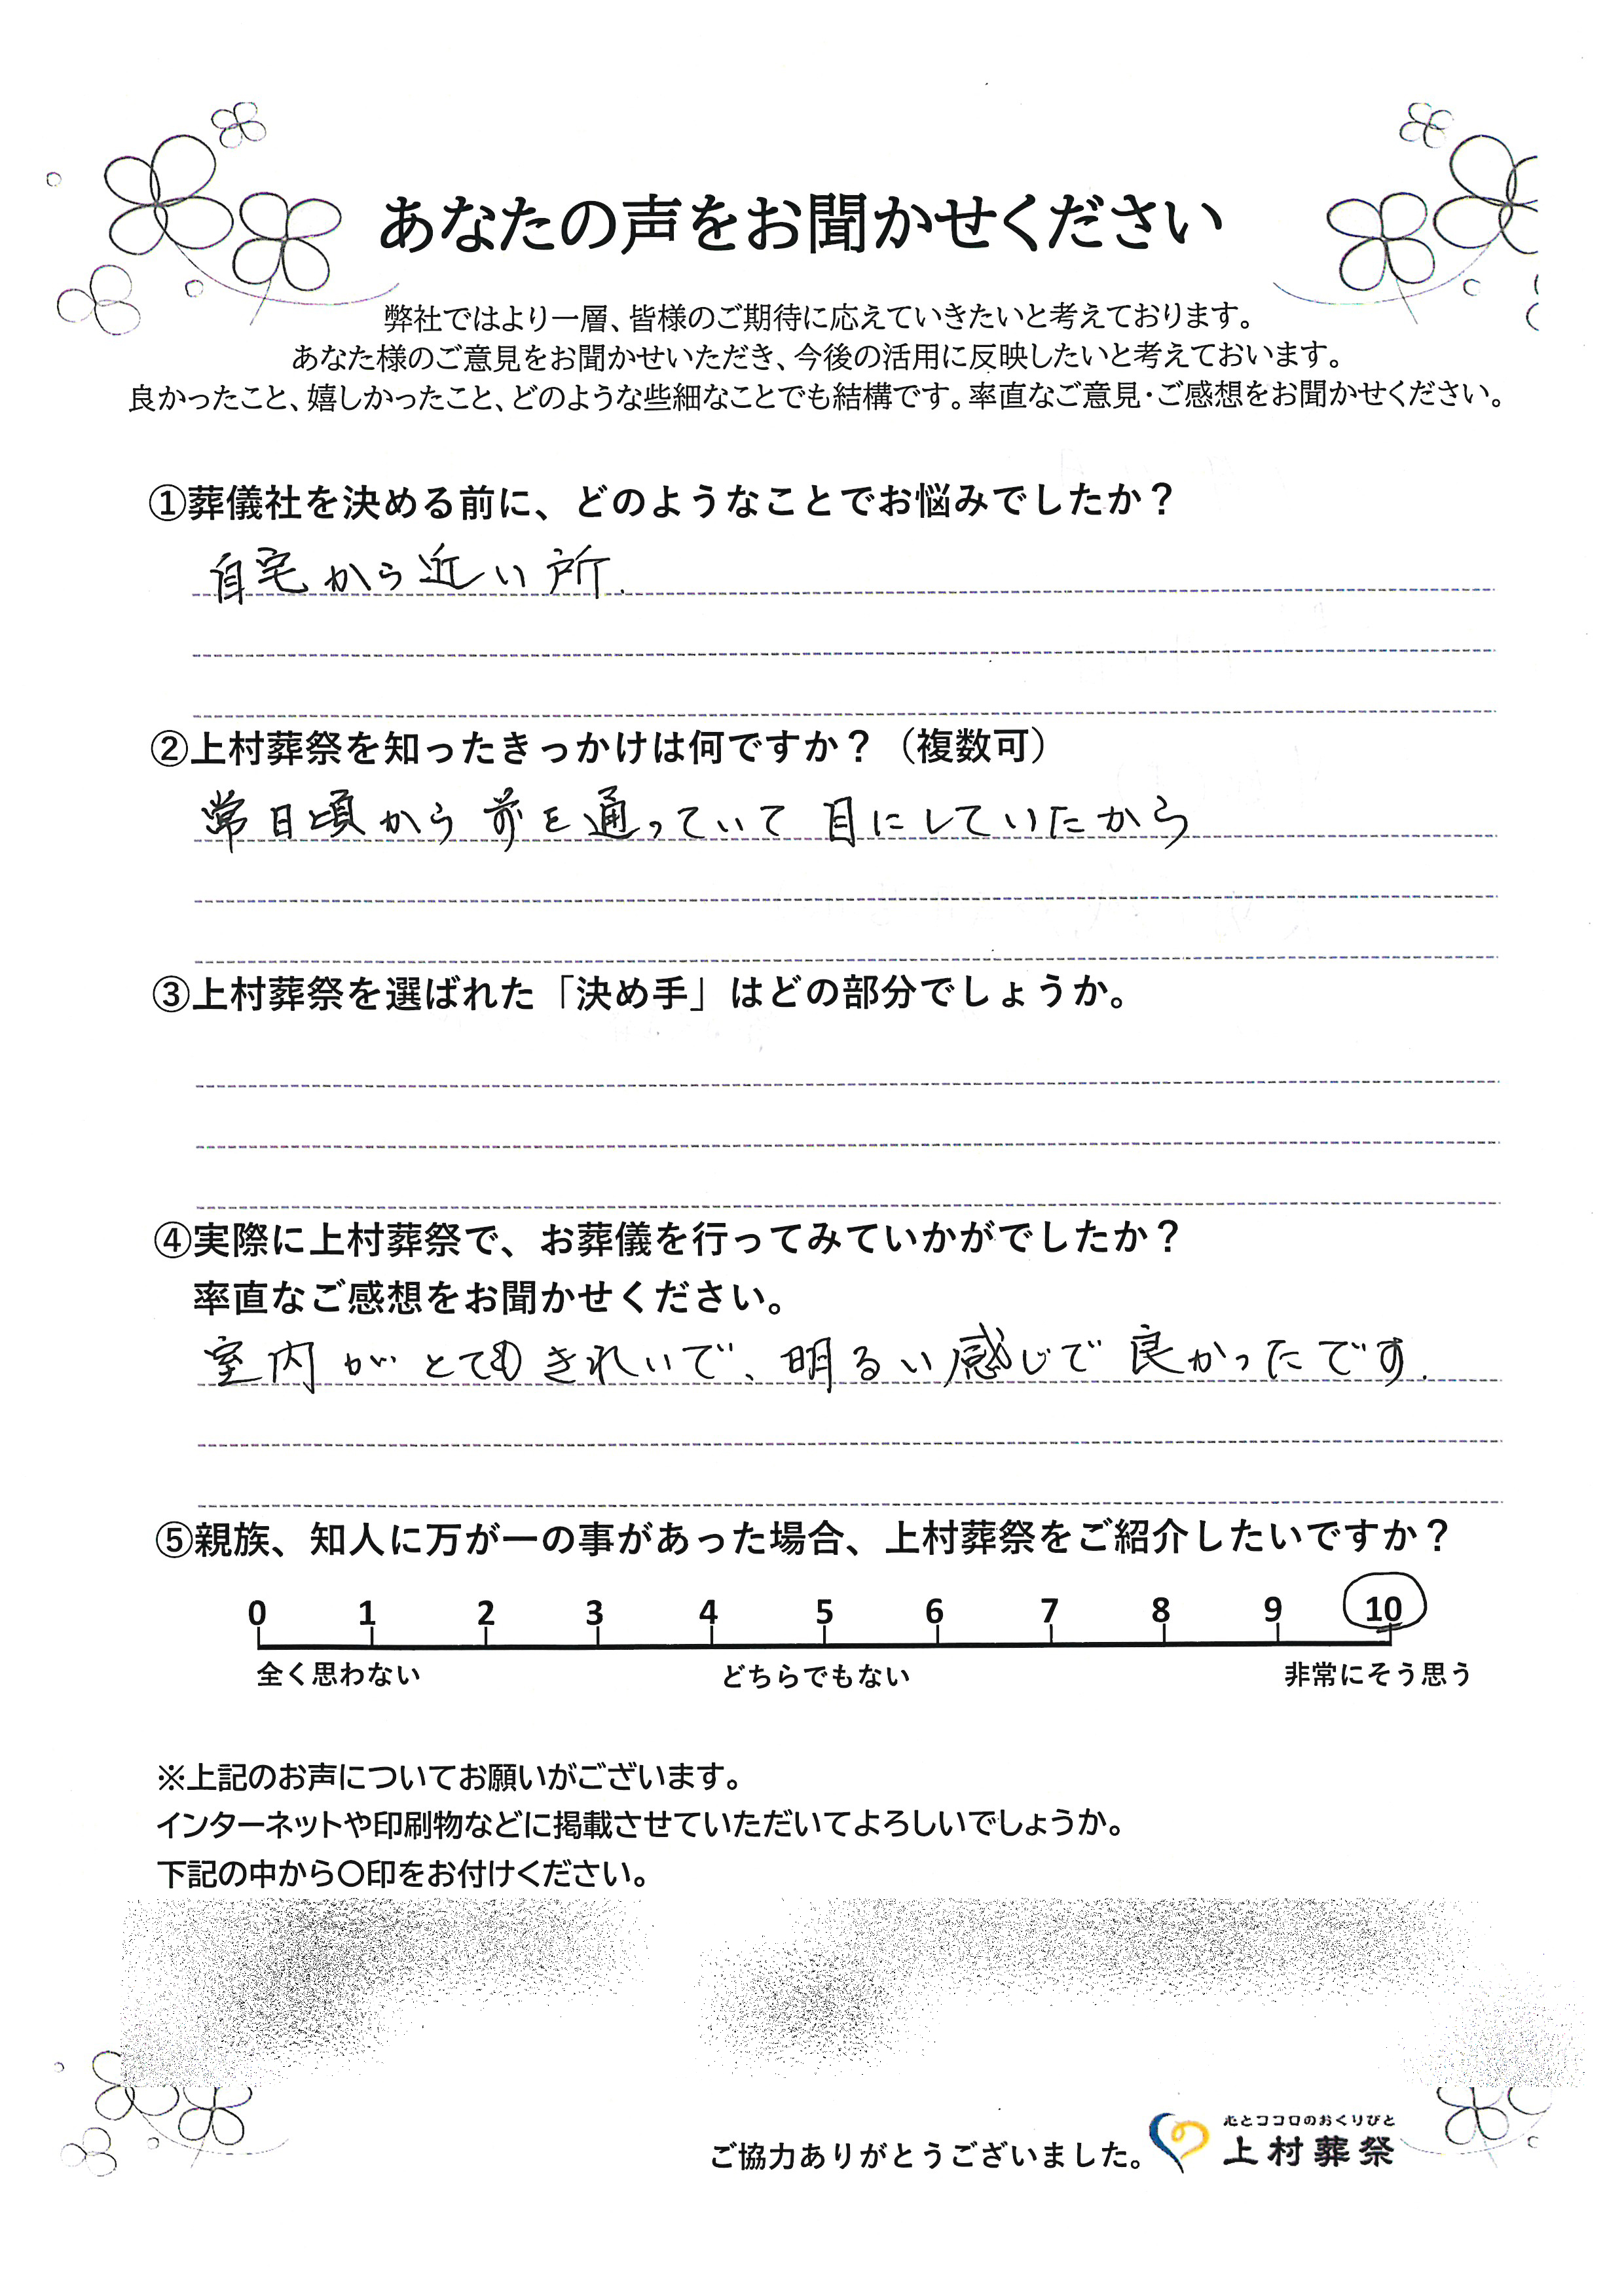 あなたの声をお聞かせください
弊社ではより一層、皆様のご期待に応えていきたいと考えております。
あなた様のご意見をお聞かせいただき、今後の活用に反映したいと考えておいます。
良かったこと、嬉しかったこと、どのような些細なことでも結構です。率直なご意見・ご感想をお聞かせください。
①葬儀社を決める前に、どのようなことでお悩みでしたか？
自宅から近い所.
②上村葬祭を知ったきっかけは何ですか？（複数可）
常日頃から前を通っていて 目にしていたから
③上村葬祭を選ばれた「決め手」はどの部分でしょうか。
④実際に上村葬祭で、お葬儀を行ってみていかがでしたか？
率直なご感想をお聞かせください。
室内がとてもきれいで、明るい感じで良かったです.
⑤親族、知人に万が一の事があった場合、上村葬祭をご紹介したいですか？
0 1 2 3 4 5 6 7 8 9 10
全く思わない どちらでもない 非常にそう思う
※上記のお声についてお願いがございます。
インターネットや印刷物などに掲載させていただいてよろしいでしょうか。
下記の中から〇印をお付けください。
心とココロのおくりびと
ご協力ありがとうございました。 上村葬祭